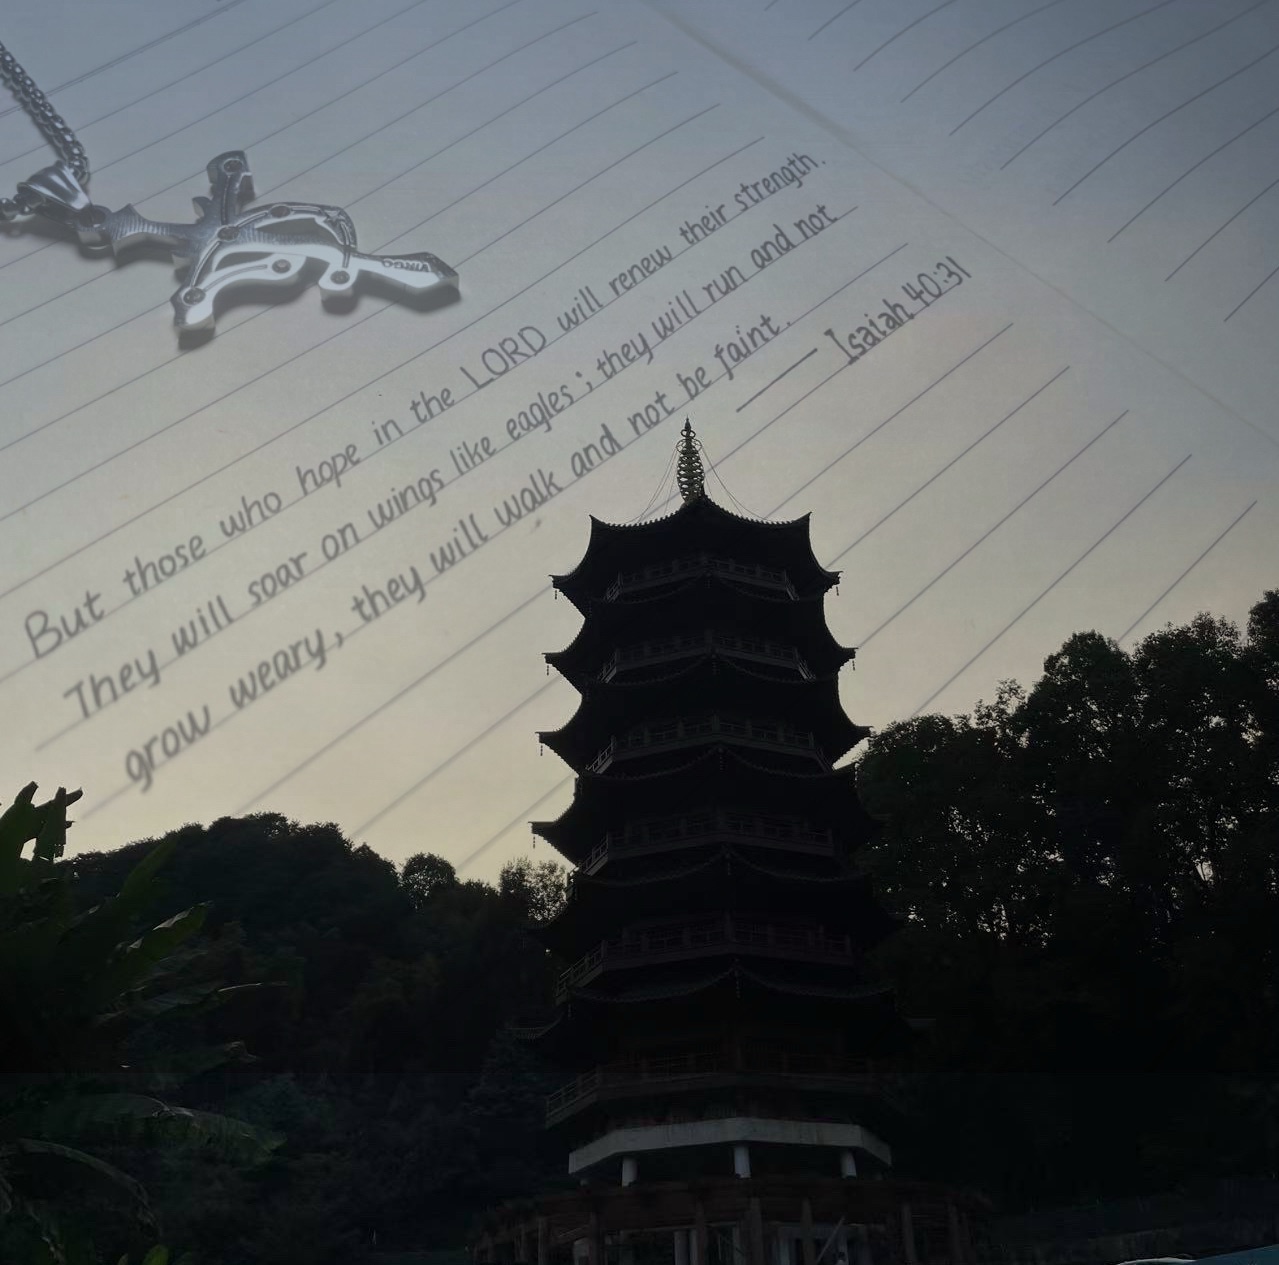 VIRGO
But those who hope in the LORD will renew their strength.
They will soar on wings like eagles; they will run and not
grow weary, they will walk and not be faint.
— Isaiah 40:31